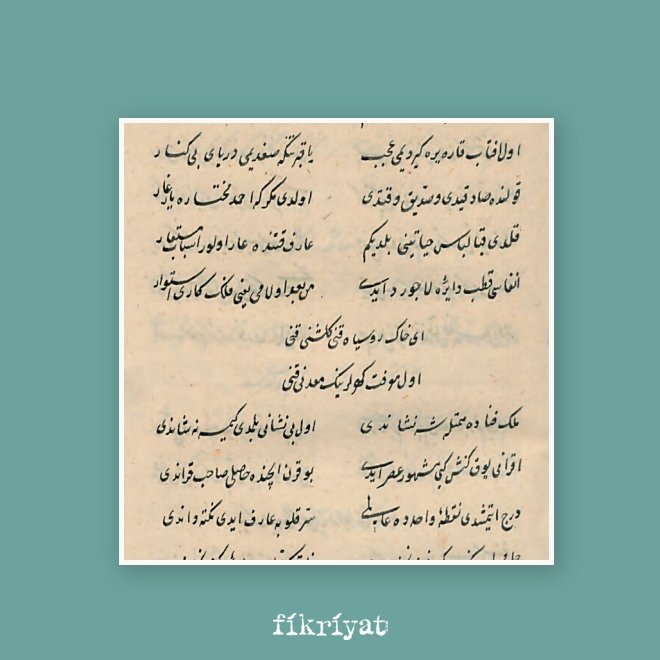 اول افتاب قاره یره کیردیمی عجب یا قبر تنکه صغدیمی دریای بی کنار
قولنده صادق ایدی و صدیق وقتدی اولدی مکر که احمد مختاره یار غار
قلدی قبا لباس حیاتینی بلدیکم عارف قتنده عار اولور اسباب مستعار
انفاسی قطب دایرۀ لاجورد ایدی من بعد اولامی یعنی فلک کاری استوار
ای خاک روسیاه قنی کلشنی قنی
اول معرفت کهرلرینک معدنی قنی
ملک فناده همتله شه نشاندی اول بی نشانی بلدی کیمسه نه شاندی
اقرانی یوق کنش کبی مشهور عصر ایدی بو قرن ایچنده حاصلی صاحب قراندی
درج ایتمشدی نقطۀ واحدده عالمی سر قلوبه عارف ایدی نکته داندی
fikriyat